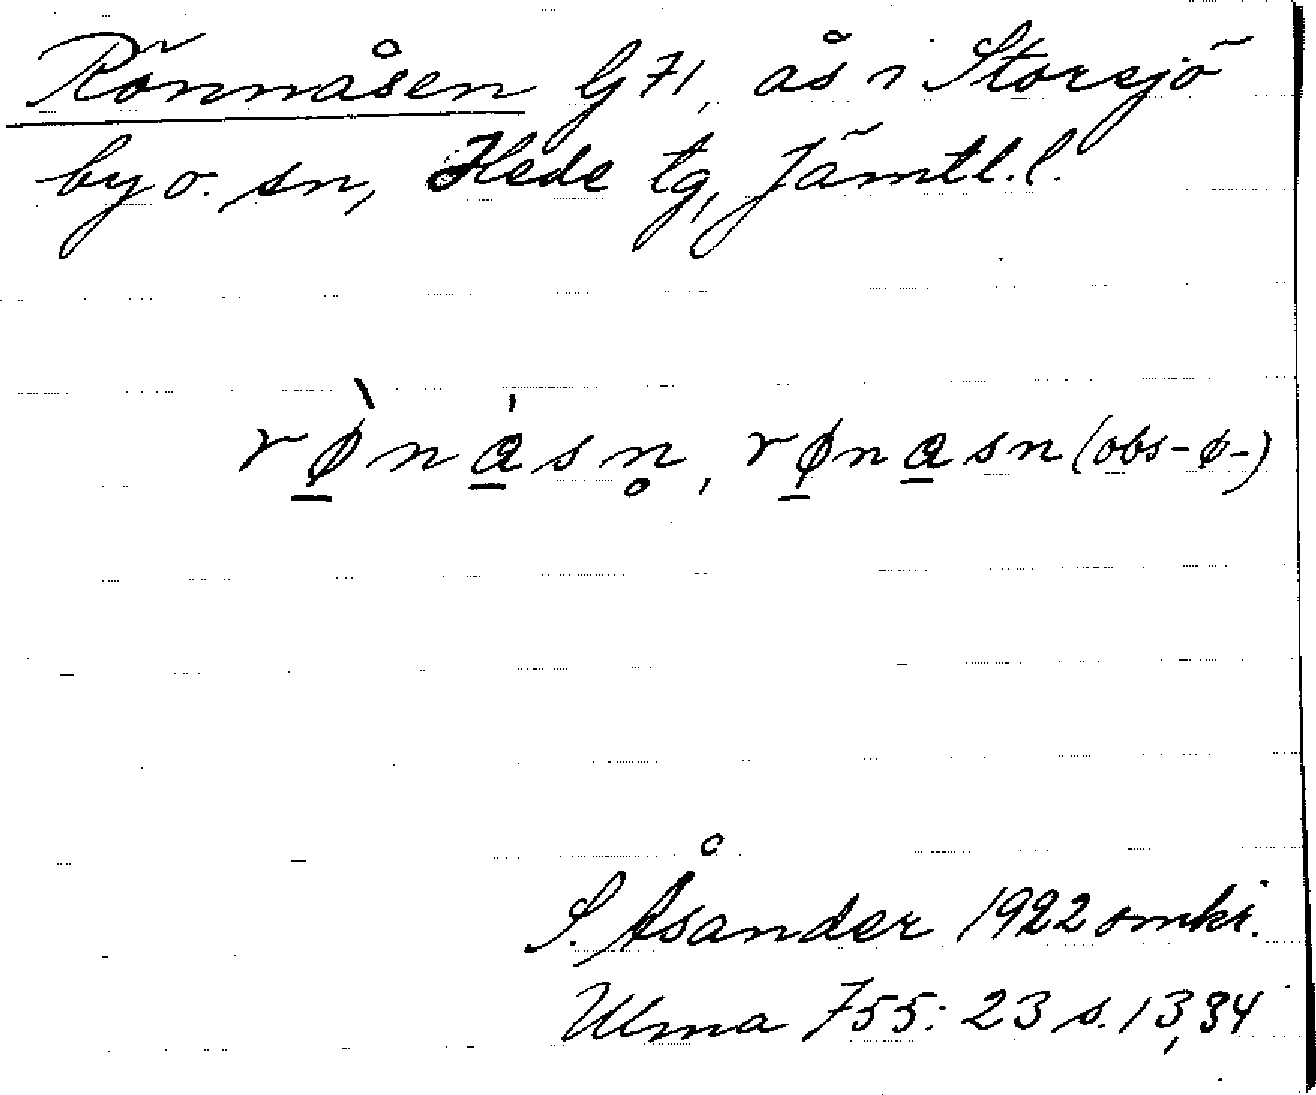 Rönnåsen G71, ås i Storsjö
by o. sn, Hede tg, Jämtl.l.
rø̲̀na̲̍sn̥, rø̲na̲sn (obs -ø-)
S. Åsander 1922 omkr.
Ulma 755:23 s. 13, 34